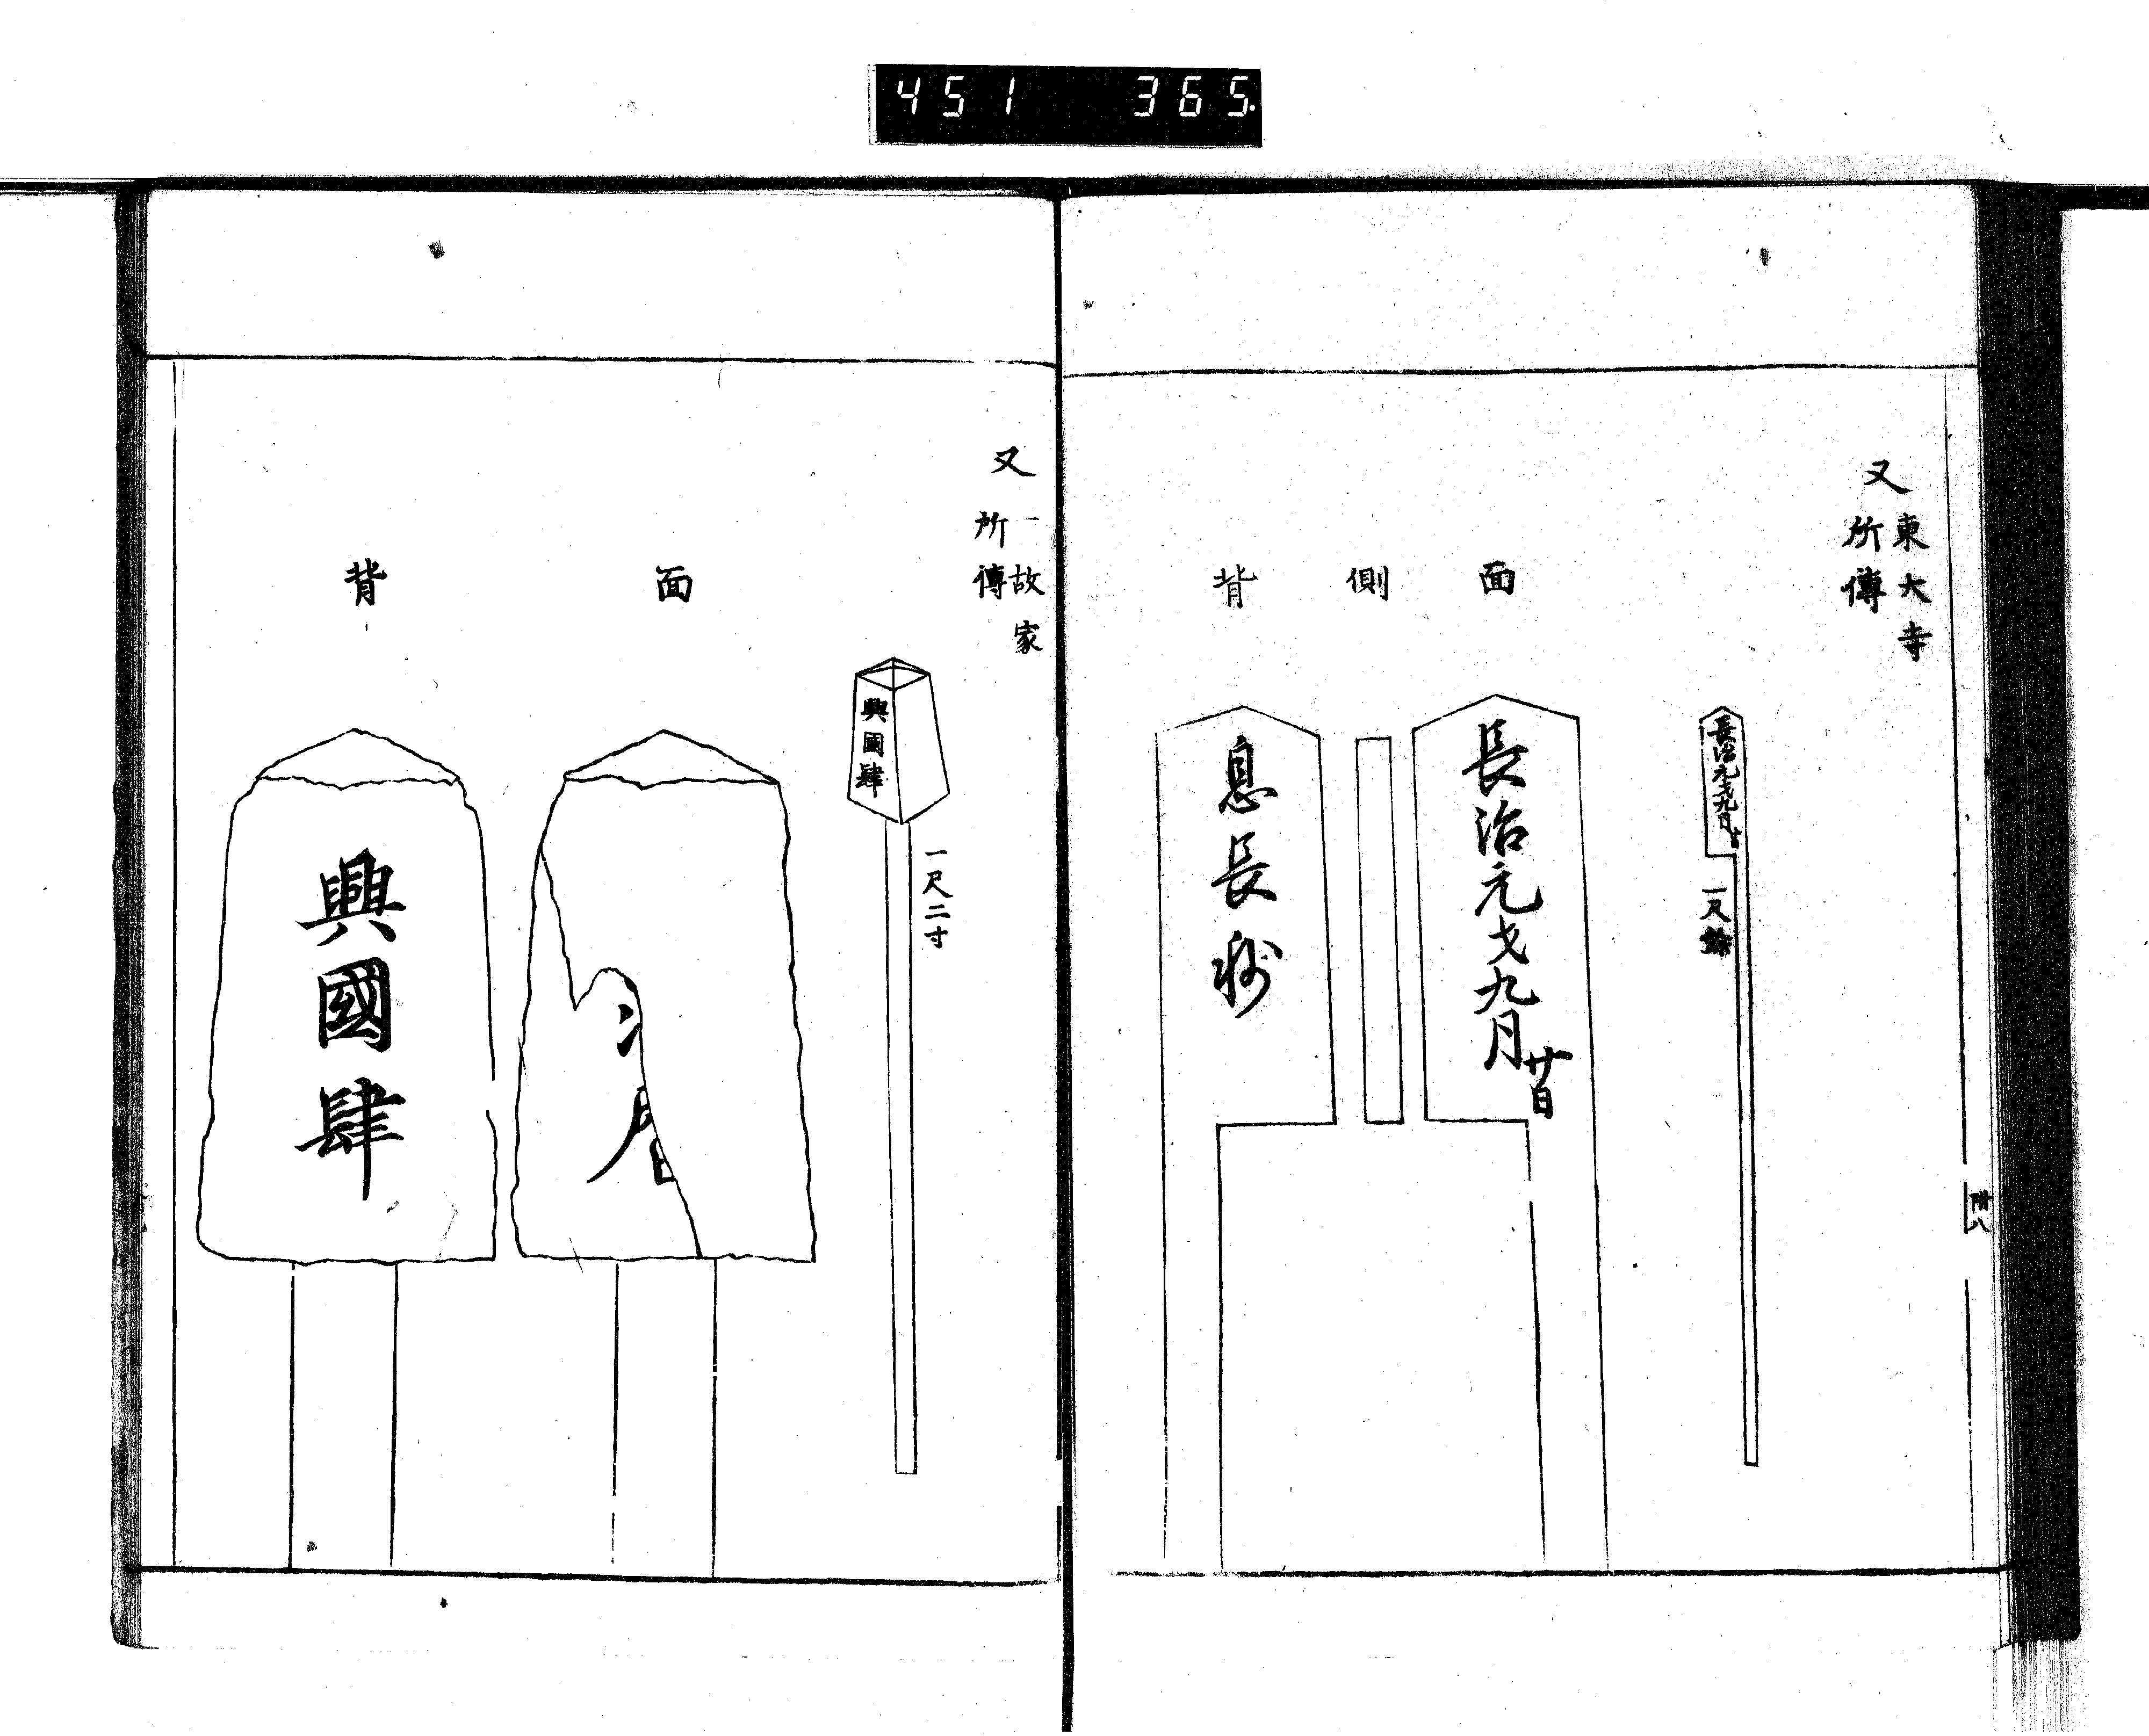 451 365
又
東大寺
所傳
長治元年九月廿日
一尺餘
面
長治元年九月
廿日
側
背
息長
附八
又
一故家
所傳
興國肆
一尺二寸
面
背
興國肆